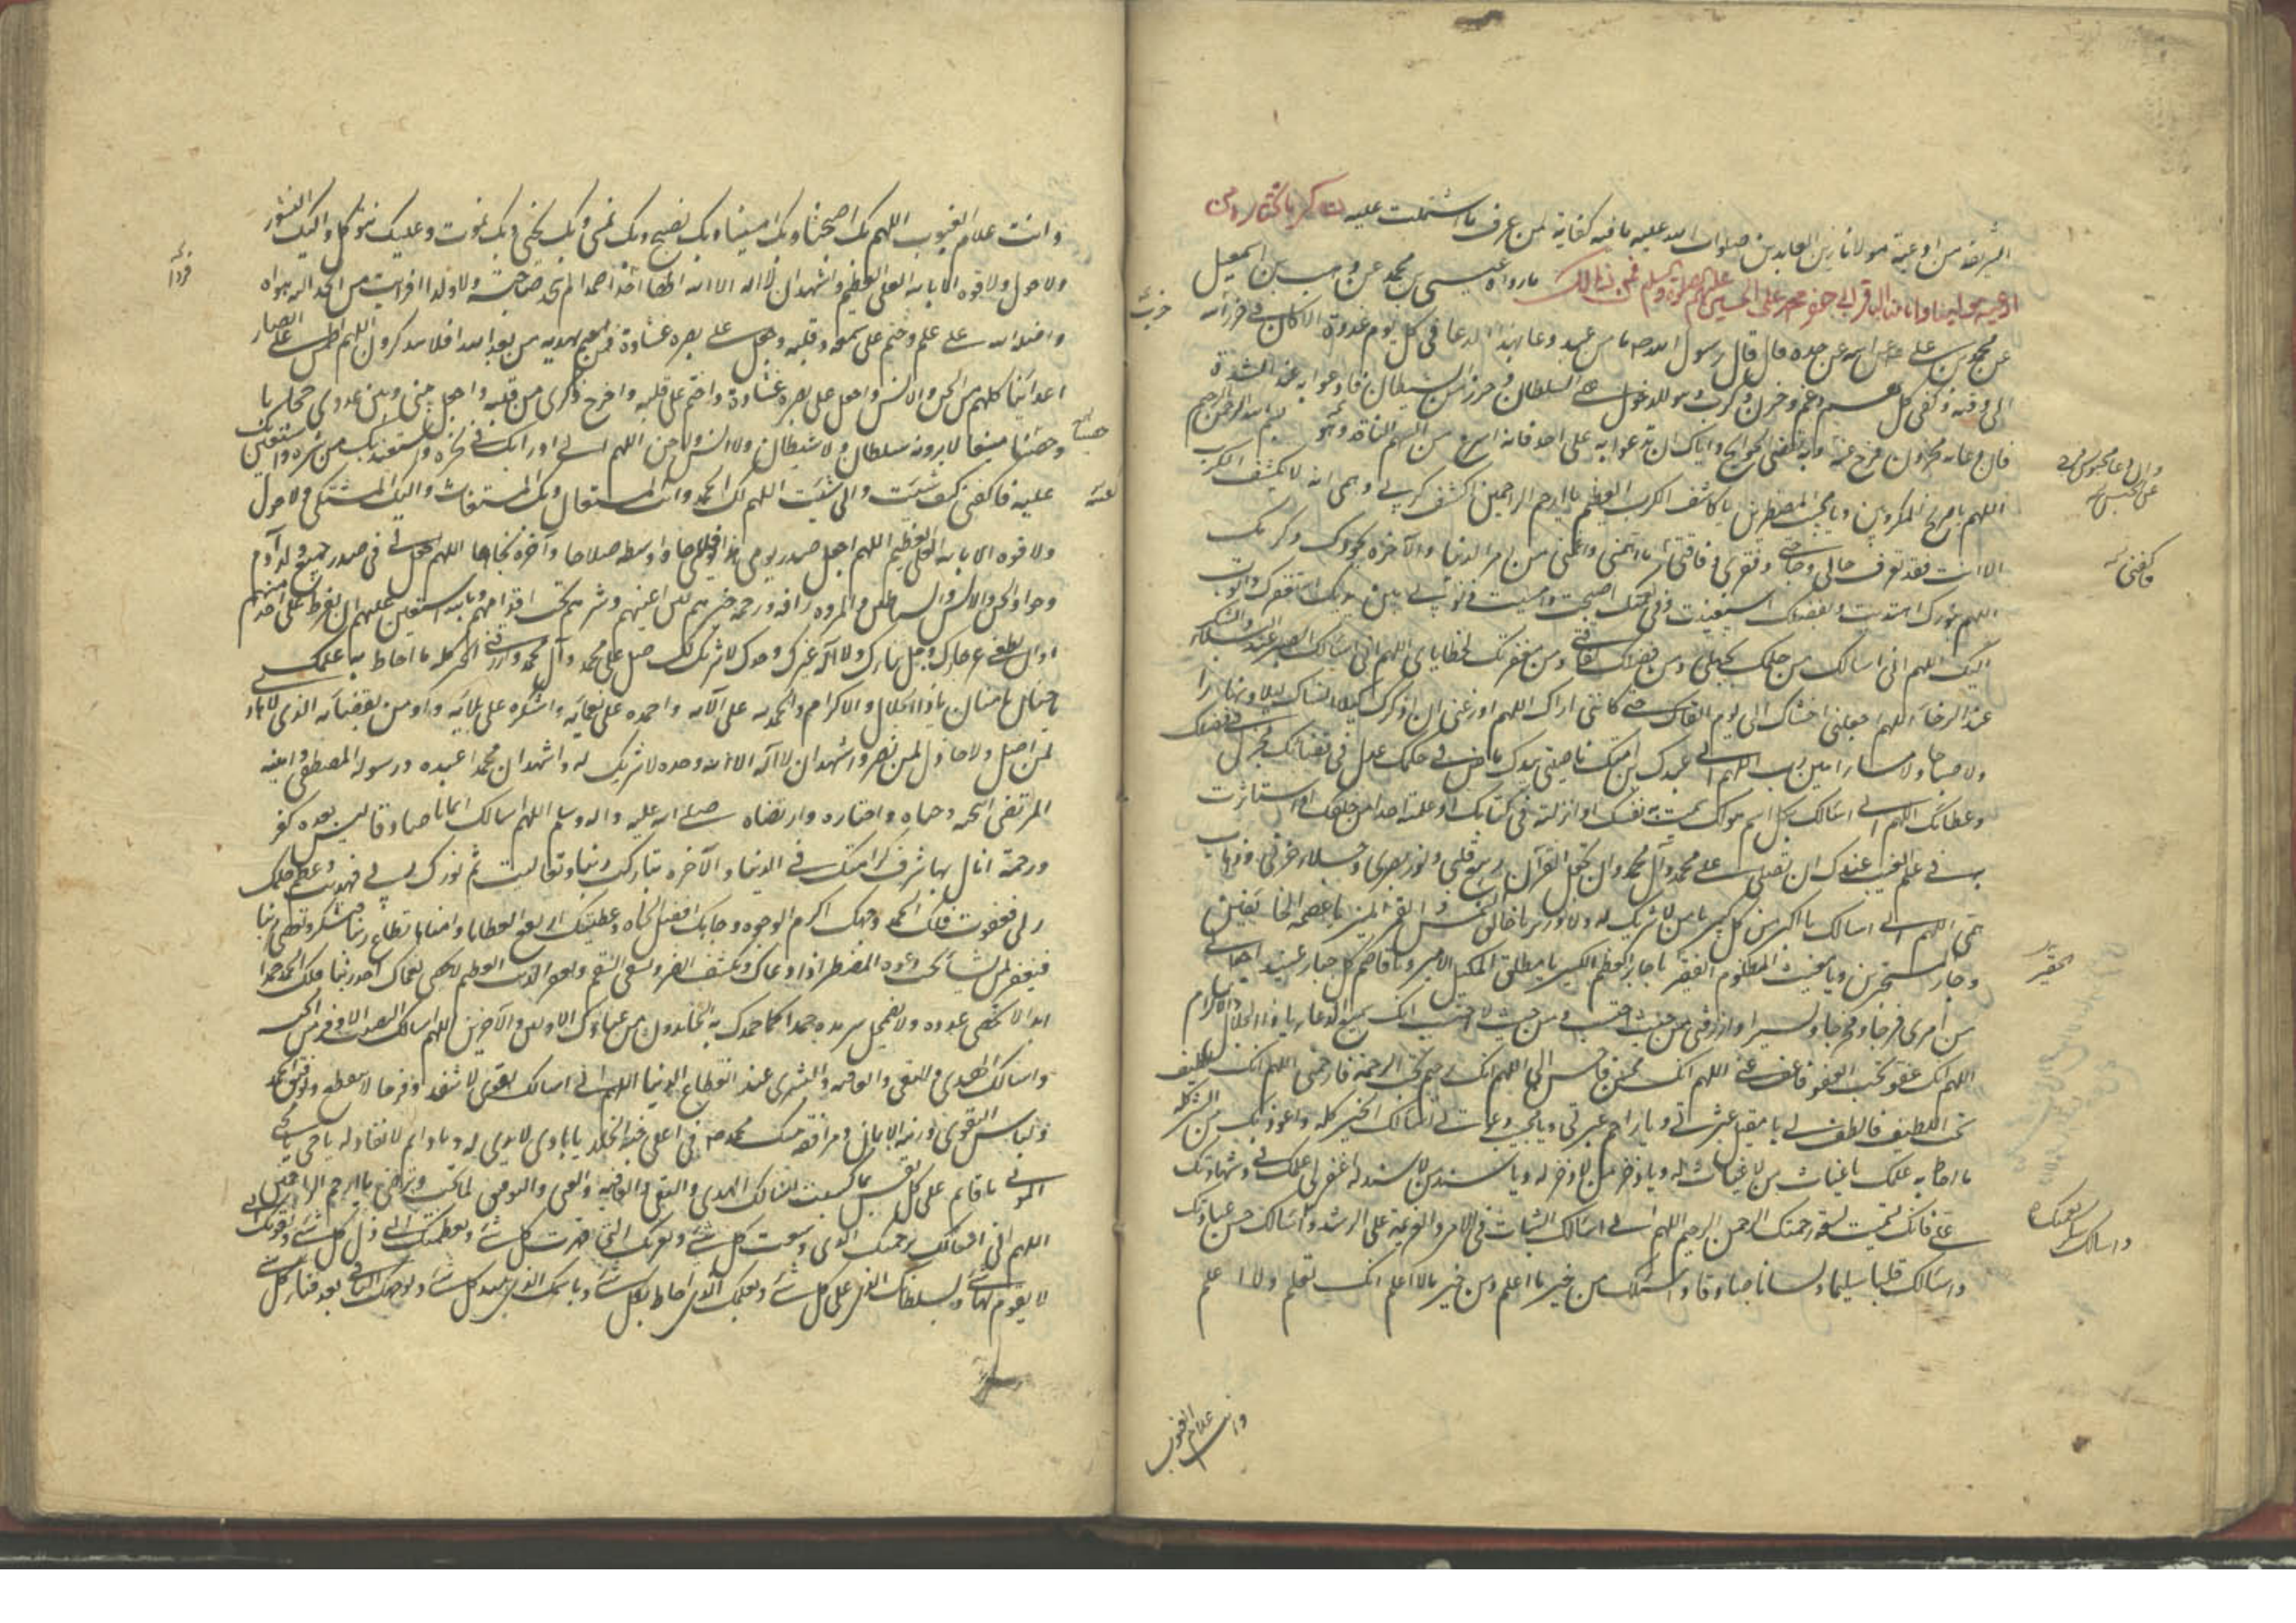 الشريفة من ادعية مولانا زين العابدين صلوات الله عليه ما فيه كفاية لمن عرف ما اشتملت عليه ذكر ما نختاره من
ادعية مولينا وامامنا الباقر ابي جعفر محمد بن علي بن الحسين عليهم الصلوة والسلم فمن ذلك ما رواه عيسى بن محمد عن وهب بن اسمعيل
عن محمد بن علي عن ابيه عن جده قال قال رسول الله ص ما من عبد دعا بهذا الدعا في كل يوم غدوة الا كان في حرز الله
الى وقته وكفى كل هم وغم وحزن وكرب وهو للدخول على السلطان وحرز من الشيطان فادعوا به عند الشدة
فان دعا به محزون فرج عنه وبه تقضى الحوايج واياك ان تدعوا به على احد فانه اسرع من السهم النافذ وهو بسم الله الرحمن الرحيم
اللهم يا صريخ المكروبين ويا مجيب المضطرين يا كاشف الكرب العظيم يا ارحم الراحمين اكشف كربي وهمي انه لا يكشف الكرب
الا انت فقد تعرف حالي وحاجتي وفقري وفاقتي ما اهمني وغمني من امر الدنيا والآخرة بجودك وكرمك
اللهم بنورك اهتديت وبفضلك استغنيت وفي نعمتك اصبحت وامسيت ذنوبي بين يديك استغفرك واتوب
اليك اللهم اني اسالك من حلمك لجهلي ومن فضلك لفاقتي ومن مغفرتك لخطاياي اللهم اني اسالك الصبر عند البلاء والشكر
عند الرخاء اللهم اجعلني اخشاك الى يوم القاك حتى كانني اراك اللهم اوزعني ان اذكرك كيلا انساك ليلا ونهارا
ولا صباحا ولا مساء امين رب اللهم اني عبدك ابن امتك ناصيتي بيدك ماض في حكمك عدل في قضائك
وعطائك اللهم اني اسالك بكل اسم هو لك سميت به نفسك او انزلته في كتابك او علمته احدا من خلقك او استاثرت
به في علم الغيب عندك ان تصلي على محمد وآل محمد وان تجعل القرآن ربيع قلبي ونور بصري وجلاء حزني وذهاب
همي اللهم اني اسالك يا اكبر من كل كبير يا من لا شريك له ولا وزير يا خالق الشمس والقمر المنير يا عصمة الخائفين
وجار المستجيرين ويا مغيث المظلوم الفقير يا جابر العظم الكسير يا مطلق المكبل الاسير ويا قاصم كل جبار عنيد اجعل لي
من امري فرجا ومخرجا ويسيرا وارزقني من حيث احتسب ومن حيث لا احتسب انك سميع الدعاء يا ذا الجلال والاكرام
اللهم انك عفو تحب العفو فاعف عني اللهم انك محسن فاحسن الي اللهم انك رحيم تحب الرحمة فارحمني اللهم انك لطيف
تحب اللطف فالطف لي يا مقيل عثرتي ويا راحم عبرتي ويا مجيب دعوتي اسالك الخير كله واعوذ بك من الشر كله
ما احاط به علمك يا غياث من لا غياث له ويا ذخر من لا ذخر له ويا سند من لا سند له اغفر لي علمك في وشهادتك
علي فانك تسميت لسعة رحمتك الرحمن الرحيم اللهم اني اسالك الثبات في الامر والعزيمة على الرشد واسالك حسن عبادتك
واسالك قلبا سليما ولسانا صادقا واسالك من خير ما اعلم ومن خير ما لا اعلم انك تعلم ولا اعلم
وان دعا محبوس فرج
عن الحبس
واكفني
الحقير
واسالك شكر نعمتك
وانت علام الغيوب
وانت علام الغيوب اللهم بك اصبحنا وبك امسينا وبك نصبح وبك نمسي وبك نحيى وبك نموت وعليك نتوكل واليك النشور
ولا حول ولا قوة الا بالله العلي العظيم واشهد ان لا اله الا الله الها احدا صمدا لم يتخذ صاحبة ولا ولدا افرايت من اتخذ الهه هواه
واضله الله على علم وختم على سمعه وقلبه وجعل على بصره غشاوة فمن يهديه من بعد الله افلا تذكرون اللهم اطمس على ابصار
اعدائنا كلهم من الجن والانس واجعل على بصره غشاوة واختم على قلبه واخرج ذكري من قلبه واجعل بيني وبين عدوي حجابا
وحصنا منيعا لا يرومه سلطان ولا شيطان ولا انس ولا جن اللهم اني ادرأ بك في نحره واستعيذ بك من شره واستعين بك
عليه فاكفني كيف شئت وانى شئت اللهم لك الحمد وانت المستعان وبك المستغاث واليك المشتكى ولا حول
ولا قوة الا بالله العلي العظيم اللهم اجعل صدر يومي هذا فلاحا واوسطه صلاحا وآخره نجاحا اللهم اجعل لي في صدر جميع ولد آدم
وحوا والجن والانس والشياطين والمردة رافة ورحمة خيرهم بين اعينهم وشرهم تحت اقدامهم وبالله استعين عليهم ان يفرط علي احد منهم
او ان يطغى عز جارك وجل ثناؤك ولا اله غيرك وحدك لا شريك لك صل على محمد وآل محمد وارزقني الخير كله ما احاط به علمك
يا حنان يا منان يا ذا الجلال والاكرام والحمد لله على آلائه واحمده على نعمائه واشكره على بلائه واومن بقضائه الذي لا هادي
لمن اضل ولا خاذل لمن نصر واشهد ان لا اله الا الله وحده لا شريك له واشهد ان محمدا عبده ورسوله المصطفى وامينه
المرتضى انتجبه وحباه واختاره وارتضاه صلى الله عليه واله وسلم اللهم اسالك ايمانا صادقا ليس بعده كفر
ورحمة انال بها شرف كرامتك في الدنيا والآخرة تباركت ربنا وتعاليت تم نورك ربي فهديت وعظم حلمك
ربي فعفوت فلك الحمد وجهك اكرم الوجوه وجاهك افضل الجاه وعطيتك ارفع العطايا واهناها تطاع ربنا فتشكر وتعصى ربنا
فتغفر لمن تشاء تجيب دعوة المضطر اذا دعاك وتكشف الضر وتشفي السقم وتغفر الذنب العظيم لا يحصي نعماءك احد ربنا فلك الحمد حمدا
ابدا لا يحصى عدده ولا يضمحل سرمده حمدا كما حمدك به الحامدون من عبادك الاولين والآخرين اللهم اسالك النصيب الاوفر من الجنة
واسالك الهدى والتقى والعافية والبشرى عند انقطاع الدنيا اللهم اني اسالك تقوى لا تنفد وفرحا لا ينقطع وتوفيق الحمد
ولباس التقوى وزينة الايمان ومرافقة نبيك محمد ص في اعلى جنة الخلد يا بادي لا بدي له ويا دائم لا نفاد له يا حي يا محيي
الموتى يا قائم على كل نفس بما كسبت اسالك الهدى والتقى والعافية والغنى والتوفيق لما تحب وترضى يا ارحم الراحمين
اللهم اني اسالك برحمتك التي وسعت كل شئ وبعزتك التي قهرت كل شئ وبعظمتك التي ذل كل شئ وبقوتك التي
لا يقوم لها شئ وبسلطانك الذي على كل شئ وبعلمك الذي احاط بكل شئ وباسمك الذي يبيد كل شئ وبوجهك الباقي بعد فناء كل شئ
فردا